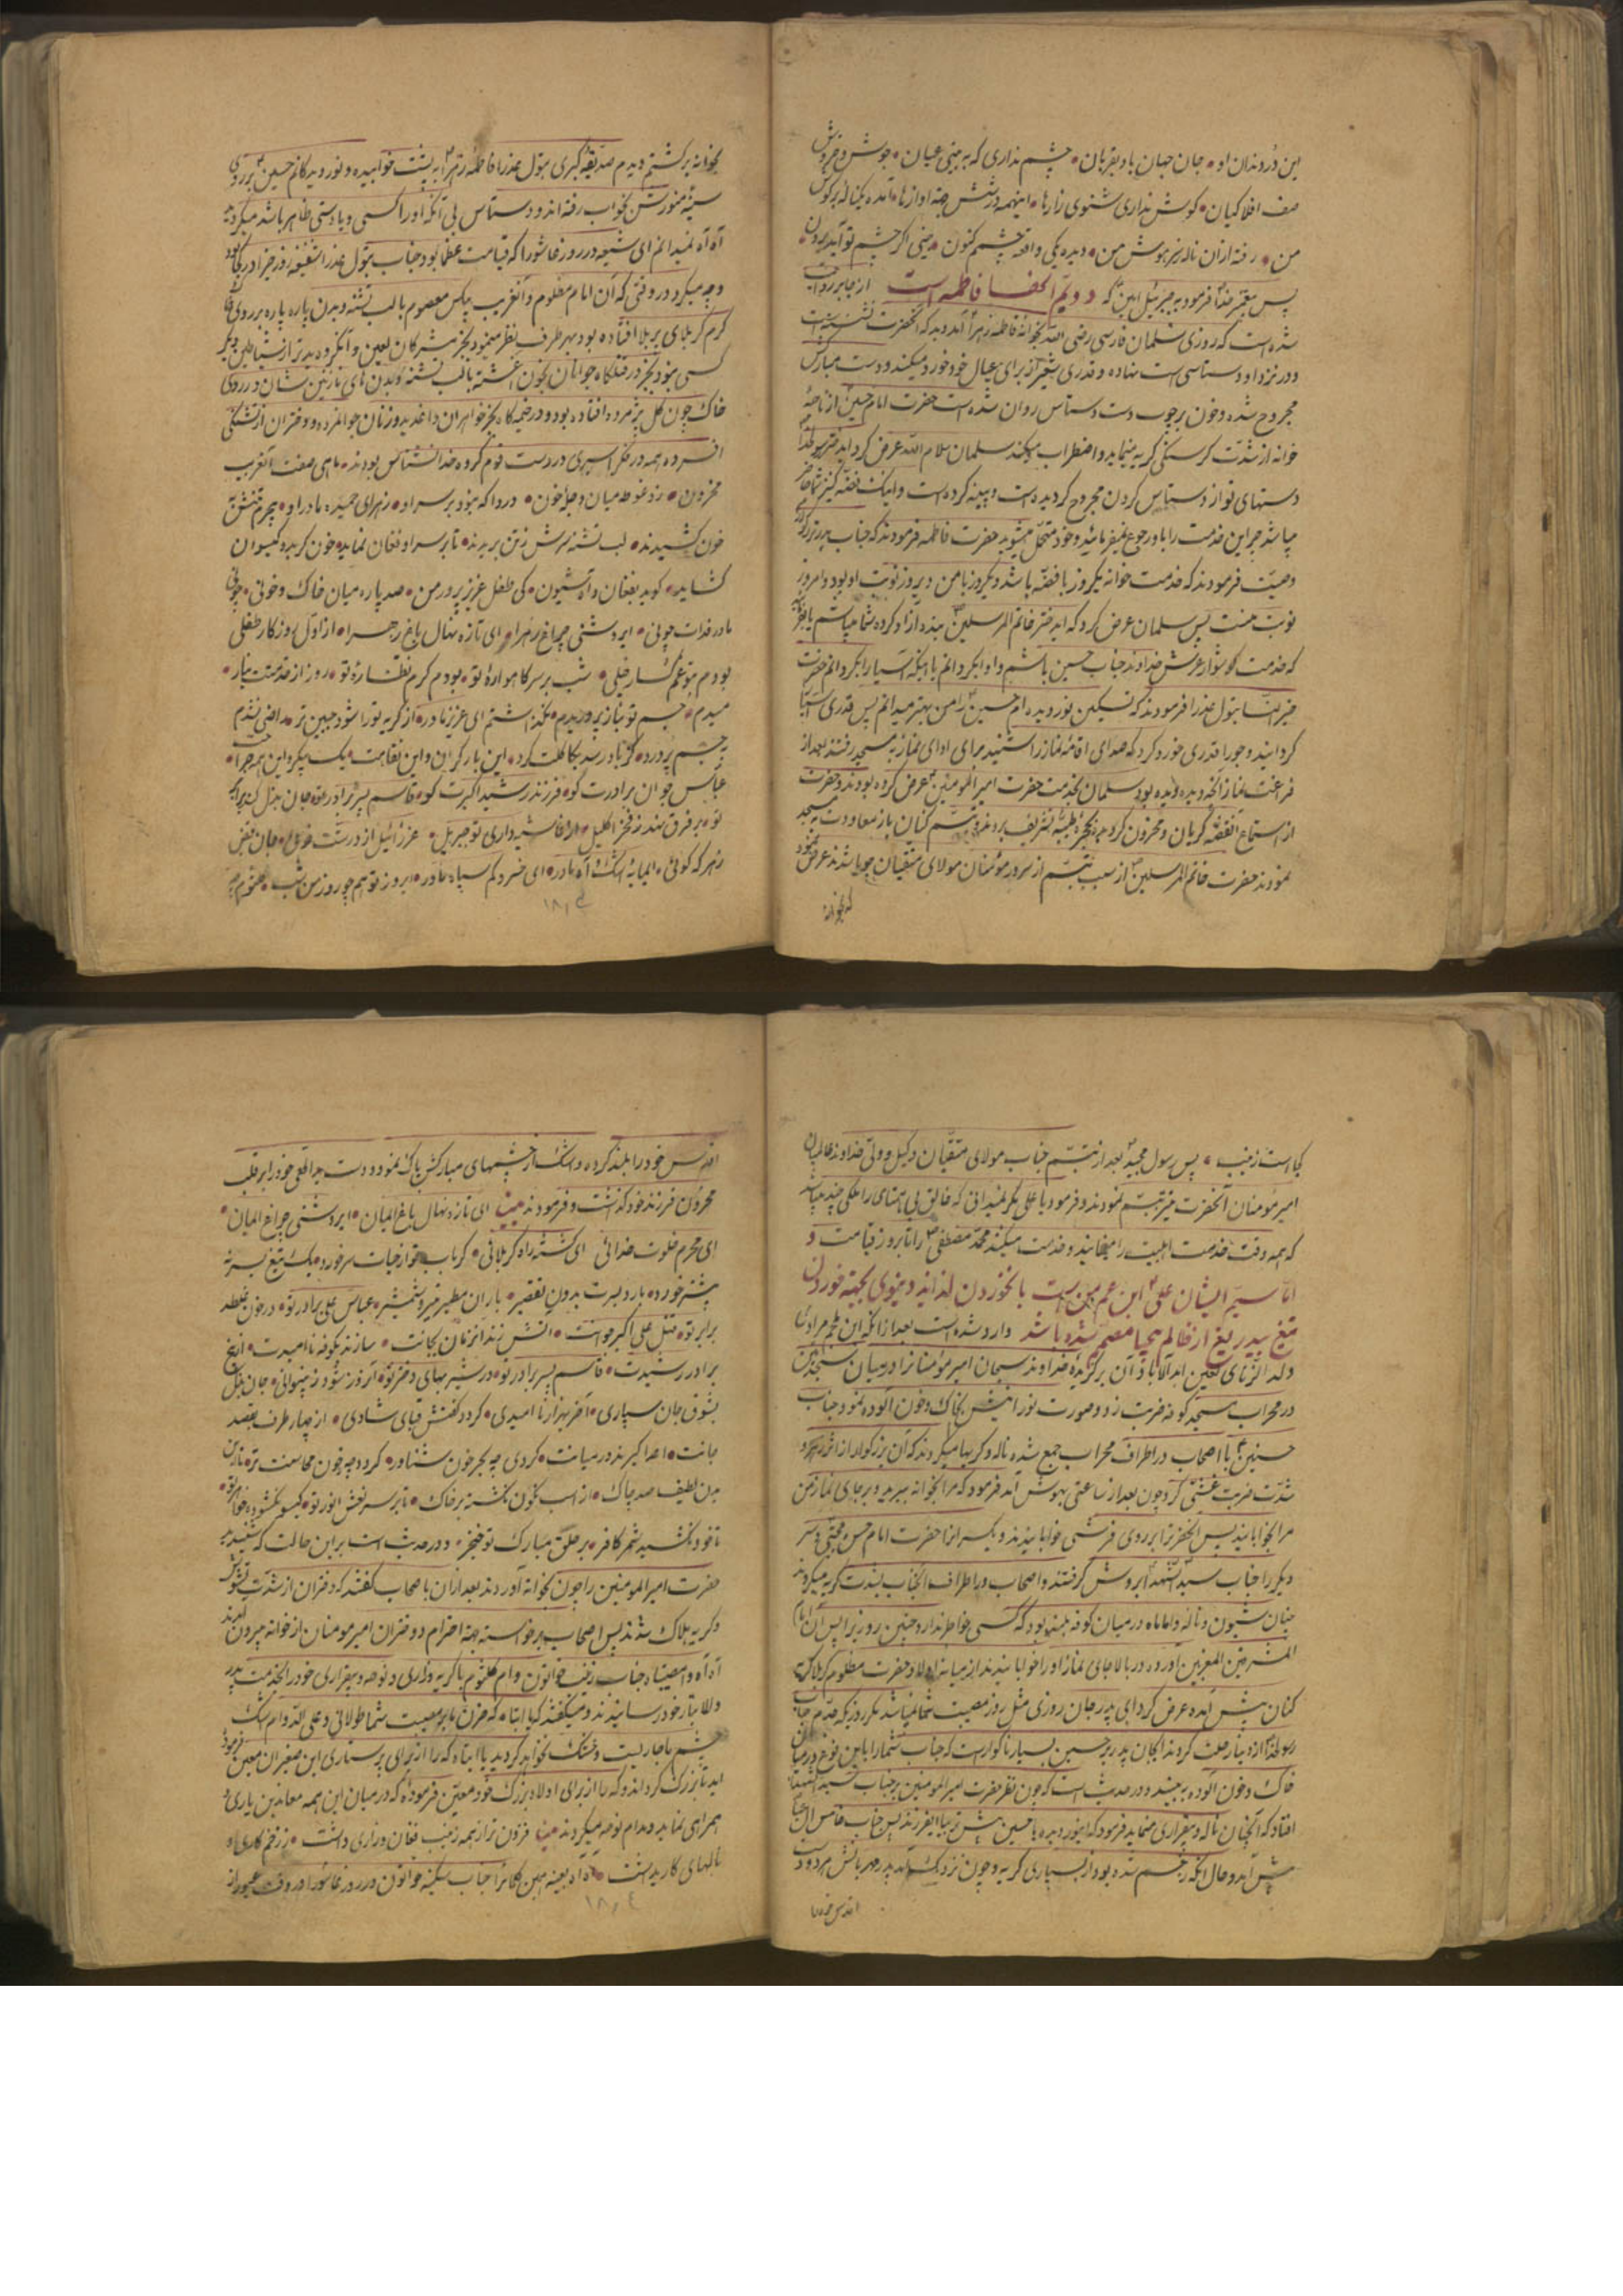 این در دندان او • جان جهان باد بقربان • چشم نداری که به بینی عیان • جوش و خروش
صف افلاکیان • کوش نداری شنوی زارها • اینهمه در عرش چه اوازها • آمده یکناله بر کوش
من • رفته ازان ناله ز سر هوش من • دیده یکی واقعه چشمم کنون • بینی اکر چشم تو آید برون •
پس پیغمبر خدا فرمود به جبرئیل امین که دویم آلحفسا فاطمه است از جابر روایت
شده است که روزی سلمان فارسی رضی الله بخوانه فاطمه زهرا آمد دید که آنحضرت نشسته است
و در نزد او دستاسی است نهاده و قدری شعیر از برای عیال خود خورد میکند و دست مبارکش
مجروح شده و خون بر چوب دست دستاس روان شده است حضرت امام حسین از ناحیه
خوانه از شدت کرسنکی کریه مینماید و اضطراب میکند سلمان سلام الله عرض کرد ای دختر رسولخدا
دستهای تو از دستاس کردن مجروح کردیده است و پینه کرده است و اینک فضه کنیز شما حاضر
میباشد چرا این خدمت را باو رجوع نمیفرمائید و خود متحمل میشوید حضرت فاطمه فرمودند که جناب پدر بزرکوارم
وصیت فرمودند که خدمت خوانه یکروز با فضه باشد و یکروز با من دیروز نوبت او بود و امروز
نوبت منست پس سلمان عرض کرد که ای دختر خاتم المرسلین بنده آزاد کرده شما میباشم
که خدمت کوشوار عرش خداوند جناب حسین باشم و او را بکردانم یا اینکه آسیا را بکردانم حضرت
خیر النسا بتول عذرا فرمودند که تسکین نور دیده ام حسین را من بهتر میدانم پس قدری آسیا
کردانید و جو را قدری خورد کرد که صدای اقامه نماز را شنید برای ادای نماز به مسجد رفتند بعد از
فراغت نماز آنچه دیده و بوده بود سلمان بخدمت حضرت امیر المومنین عرض کرده بودند و حضرت
از استماع آنقصه کریان و محزون کردیده بحجره طیبه تشریف بردند و تبسم کنان باز معاودت به مسجد
نمودند حضرت خاتم المرسلین از سبب تبسم از سرور مؤمنان مولای متقیان جویا شدند عرض نمود
که بخوانه
بخوانه برکشتم دیدم صدیقه کبری بتول عذرا فاطمه زهرا به پشت خوابیده و نور دیدکانم حسین بر روی
سینه منورش بخواب رفته اند و دستاس بی آنکه او را کسی و یا دستی ظاهر باشد میکردید
آه آه نمیدانم ای شیعه در روز عاشورا که قیامت عظما بود جناب بتول عذرا شفیعه روز جزا در کجا بود
و چه میکرد در وقتی که آن امام مظلوم و آنغریب بیکس معصوم با لب تشنه و بدن پاره پاره بر روی خاک
کرم کربلای پر بلا افتاده بود بهر طرف نظر مینمود بجز مشرکان لعین و آنکروه بدتر از شیاطین دیکر
کسی نبود بجز در قتلکاه جوانان بخون آغشته با لب تشنه و بدن های نازنین شان در روی
خاک چون کل پژمرده افتاده بود و در خیمه کاه بجز خواهران داغدیده و زنان جوانمرده و دختران از تشنکی
افسرده همه در فکر اسیری در دست قوم کروه خدا نشناس بودند • ماهی صفت آنغریب
محزون • زد غوطه میان دجله خون • دردا که نبود بر سر او • زهرای حمیده مادر او •
خون کشیدند • لب تشنه سرش ز تن بریدند • تا بر سر او فغان نماید • خون کرید و کیسوان
کشاید • کوید بفغان و آه و شیون • کی طفل عزیز پرور من • صد پاره میان خاک و خونی • چونی
مادر فدات چونی • ای روشنی چراغ زهرا • ای تازه نهال باغ زهرا • از اول روزکار طفلی
بودم بتو غمکسار خیلی • شب بر سر کاهواره تو • بودم کرم نظاره تو •
میدم • جسم تو بناز پروریدم • نکذاشتم ای عزیز مادر • از کریه تو را شود جبین تر • راضی نشدم
به چشم پر درد • کز باد رسد بکاکلت کرد • این بار کران و این نقاهت • یک پیکر و این همه جراحت
عباس جوان برادرت کو • فرزند رشید اکبرت کو • قاسم پسر برادر تو
تو • بر فرق نهند ز فخر اکلیل • جبریل • عزرائیل از درت • جان قبض
ز هر که کوئی • ایمایه اشک و آه مادر • ای خسرو کم سپاه مادر • امروز تو هم چو روز من شب •
١٨٠٣
کجا است زینب • پس رسول مجید بعد از تبسم جناب مولای متقیان وکیل و ولی خداوند عالمیان
امیر مؤمنان آنحضرت نیز تبسم نمودند و فرمود یا علی مکر نمیدانی که خالق بی همتای را ملکی چند میباشد
که همه وقت خدمت اهلبیت را مینمایند و خدمت میکنند محمد مصطفی را تا بروز قیامت و
اما سیم ایشان علی ابن عم من است با نخوردن لذایذ دنیوی بجهة خوردن
تیغ بیدریغ از ظالم بیحیا مصمم شده باشد وارد شده است بعد از آنکه ابن ملجم مرادی
ولد الزنای لعین ابد الآباد آن برکزیده خداوند سبحان امیر مؤمنان را در میان سجده
در محراب مسجد کوفه ضربت زد و صورت نورانیش بخاک و خون آلوده نمود جناب
حسنین با اصحاب در اطراف محراب جمع شده ناله و کریها میکردند که آن بزرکوار از اثر زهر و
شدت ضربت غش کرد چون بعد از ساعتی بهوش آمد فرمود که مرا بخوانه ببرید و بر جای نماز من
مرا بخوابانید پس آنحضرترا بر روی فرشی خوابانیدند و یکسر انرا حضرت امام حسن مجتبی و سر
دیکر را جناب سید الشهدا بر دوش کرفتند و اصحاب در اطراف آنجناب بشدت کریه میکردند
چنان شیون و ناله و اماماه در میان کوفه بلند بود که کسی بخواطر ندارد چنین روز را پس آن امام
المشرقین المغربین آورده در بالا جای نماز او را خوابانیدند از میانه اولاد حضرت مظلوم کربلا کریه
کنان پیش آمده عرض کرد ای پدر جان روزی مثل روز مصیبت شما نمیباشد مکر روزیکه جدم جناب
رسولخدا از دنیا رحلت کردند ایجان پدر بر حسین بسیار ناکوار است که جناب شما را باین نوع در میان
خاک و خون آلوده به بیند و در حدیث است که چون نظر حضرت امیر المومنین بر جناب سید الشهدا
افتاد که آنچنان ناله و بیقراری مینماید فرمود که اینور دیده یا حسین پیش تر بیا ایفرزند پس جناب خامس آل عبا
پیش آمد و حال آنکه زخم شده بود از بسیاری کریه و چون نزدیک آمد پدر مهربانش هر دو دست
اقدس خود را
اقدس خود را بلند کرده و اشک از چشمهای مبارکش پاک نمود و دست ید اللهی خود را بر قلب
محزون فرزند خود کذاشت و فرمودند بیت ای تازه نهال باغ المیان • ای روشنی چراغ المیان •
ای محرم خلوت خدائی ای کشته راه کربلائی • کر باب تو از حیات سر خورد • یک تیغ بسر نه
بیشتر خورد • بارد بسرت بدون تقصیر • باران مطیر تیر و شمشیر • عباس علی برادر تو • در خون غلطد
برابر تو • قتل علی اکبر جوانت • آتش زند آنزمان بجانت • سازند بکوفه نا امیدت • از تیغ
برادر رشیدت • قاسم پسر برادر تو • در شیر بهای دختر تو • آنروز شود ز بینوائی •
بشوق جان سپاری • آخر بهزار نا امیدی • کردد کفنش قبای شادی • از چهار طرف بقصد
جانت • اعدا کیرند در میانت • کردی چه ببحر خون شناور • کردد چه ز خون محاسنت تر •
بدن لطیف صد چاک • از اسب نکون نکشته بر خاک • تا بر سر نعش انور تو • کیسو بکشوده خواهر تو •
تا خود بکشید شمر کافر • بر حلق مبارک تو خنجر • و در حدیث است بر این حالت که
حضرت امیر المومنین را چون بخوانه آوردند بعد از آن با اصحاب کفتند که دختران از شدت تشویش
و کریه هلاک شدند پس اصحاب برخواسته بجهة احترام دختران امیر مومنان از خوانه بیرون آمدند
آه آه وا مصیبتاه جناب زینب خواتون و ام کلثوم با کریه و زاری و نوحه و بیقراری خود را بخدمت پدر
والا تبار خود رسانیدند و میکفتند که یا ابتاه که حزن ما بر مصیبت شما طولانی و علی الدوام اشک
چشم ما جاریست و خشک نخواهد کردید یا ابتاه که را از برای پرستاری این صغیران معین فرموده
اید تا بزرک کرداند و که را از برای اولاد بزرک خود معین فرموده که در میان این همه معاندین یاری و
همراهی نماید و مدام نوحه میکردند بیت فزون تر از همه زینب فغان و زاری داشت • ز زخم کاری او
نالهای کاری داشت • آه آه بعینه همین کلام را جناب سکینه خواتون در روز عاشورا در وقت
١٨٠٤